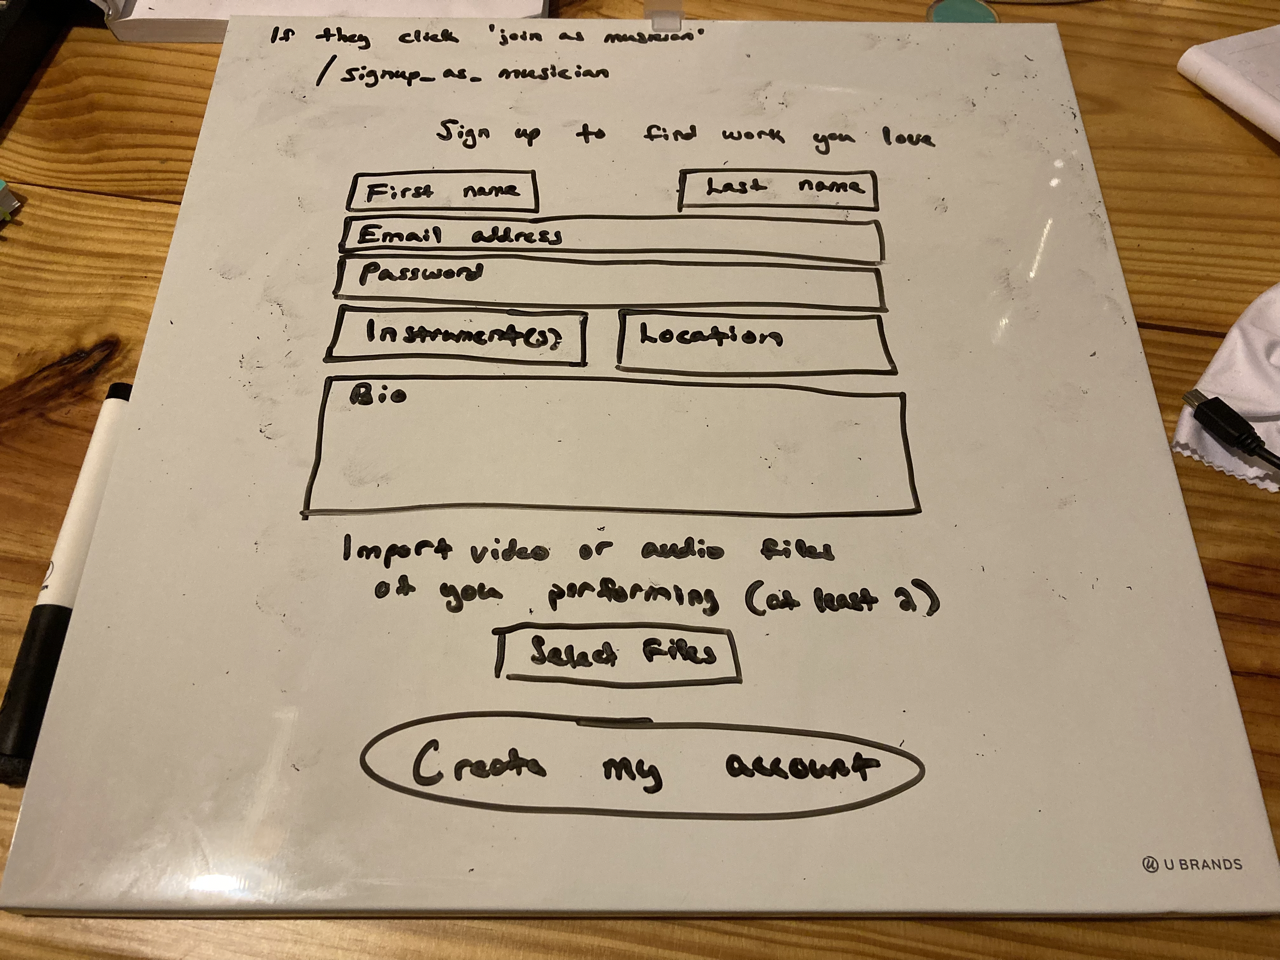 If they click 'join as musician'
/signup_as_musician
Sign up to find work you love
First name Last name
Email address
Password
Instrument(s) Location
Bio
Import video or audio files
of you performing (at least 2)
Select Files
Create my account
U BRANDS